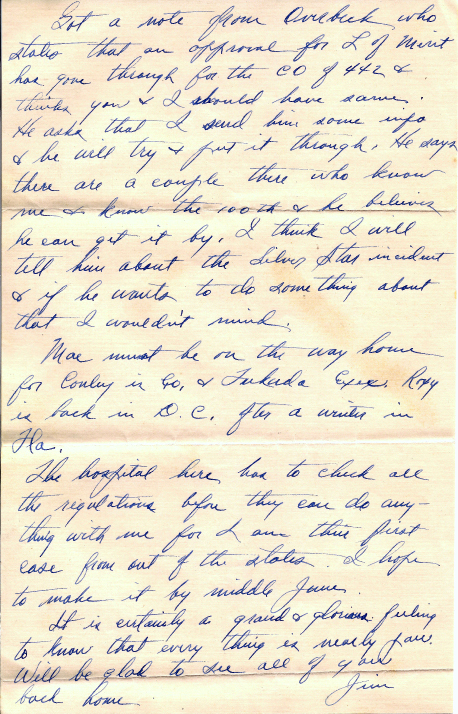 Got a note from Overbeck who
states that an approval for L of Merit
has gone through for the CO of 442 &
thinks you & I should have same.
He asks that I send him some info
& he will try & put it through. He says
there are a couple there who know
me & know the 100th & he believes
he can get it by. I think I will
tell him about the Silver Star incident
& if he wants to do something about
that I wouldn't mind.
Mac must be on the way home
for Conley is CO, & Fukuda Exec. Roxy
is back in D.C. after a winter in
Fla.
The hospital here has to check all
the regulations before they can do any-
thing with me for I am their first
case from out of the states. I hope
to make it by middle June.
It is certainly a grand & glorious feeling
to know that every thing is nearly
Will be glad to see all of you
back home.
Jim